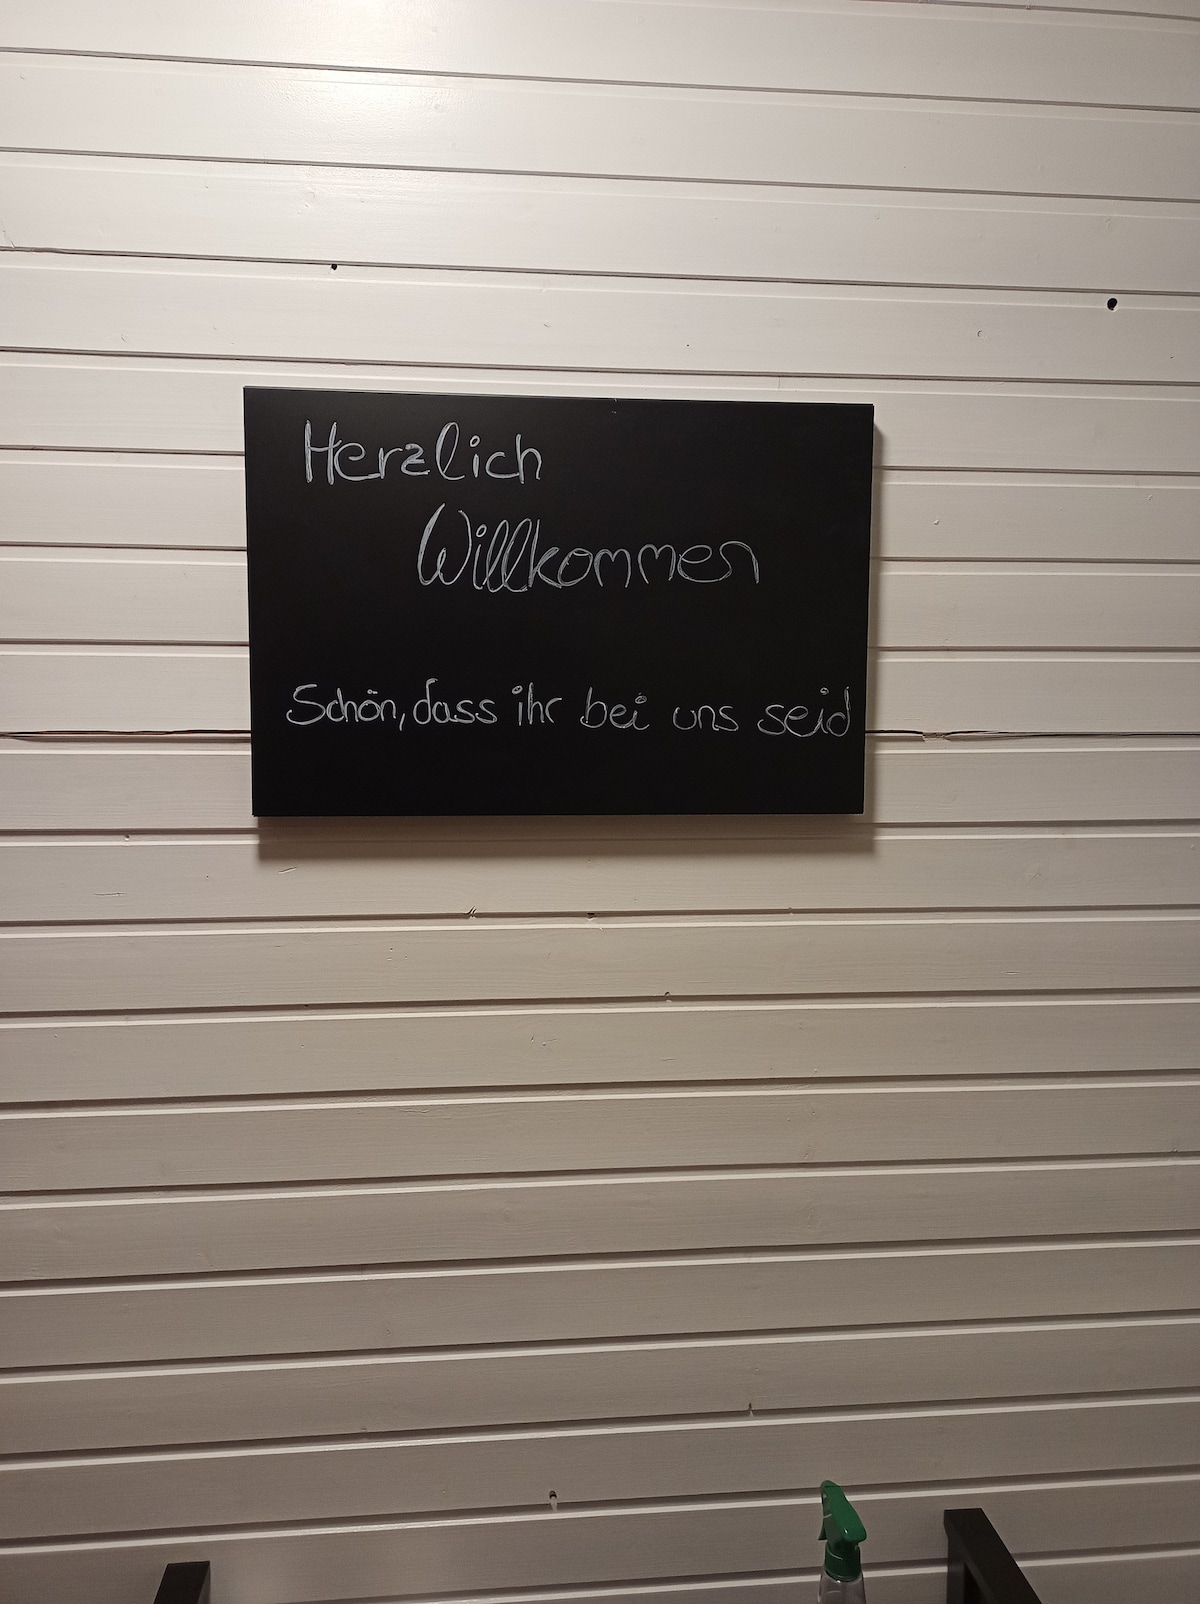 Herzlich
Willkommen
Schön, dass ihr bei uns seid